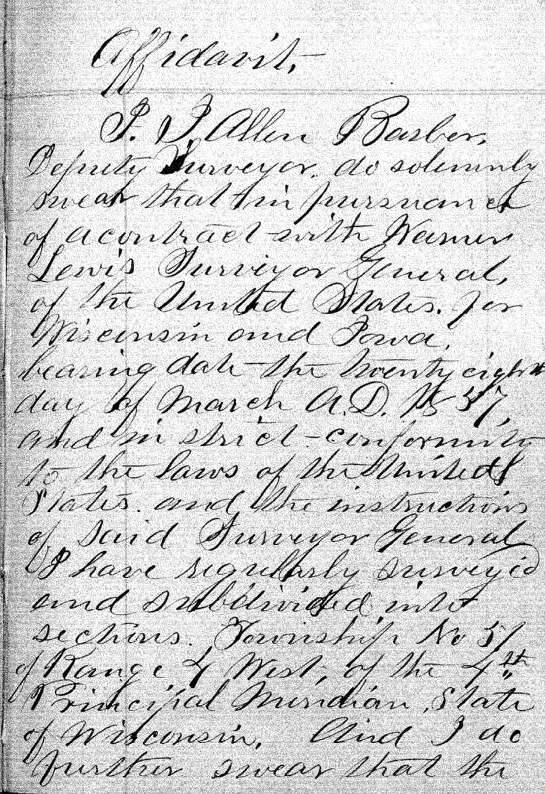 Affidavit,
I, J. Allen Barber,
Deputy Surveyor, do solemnly
swear that in pursuance
of a contract with Warner
Lewis Surveyor General,
of the United States, for
Wisconsin and Iowa,
bearing date the twenty eighth
day of March A.D. 1857,
and in strict conformity
to the laws of the United
States, and the instructions
of said Surveyor General
I have regularly surveyed
and subdivided into
sections. Township No 51
of Range 4 West, of the 4th
Principal Meridian, State
of Wisconsin. And I do
further swear that the